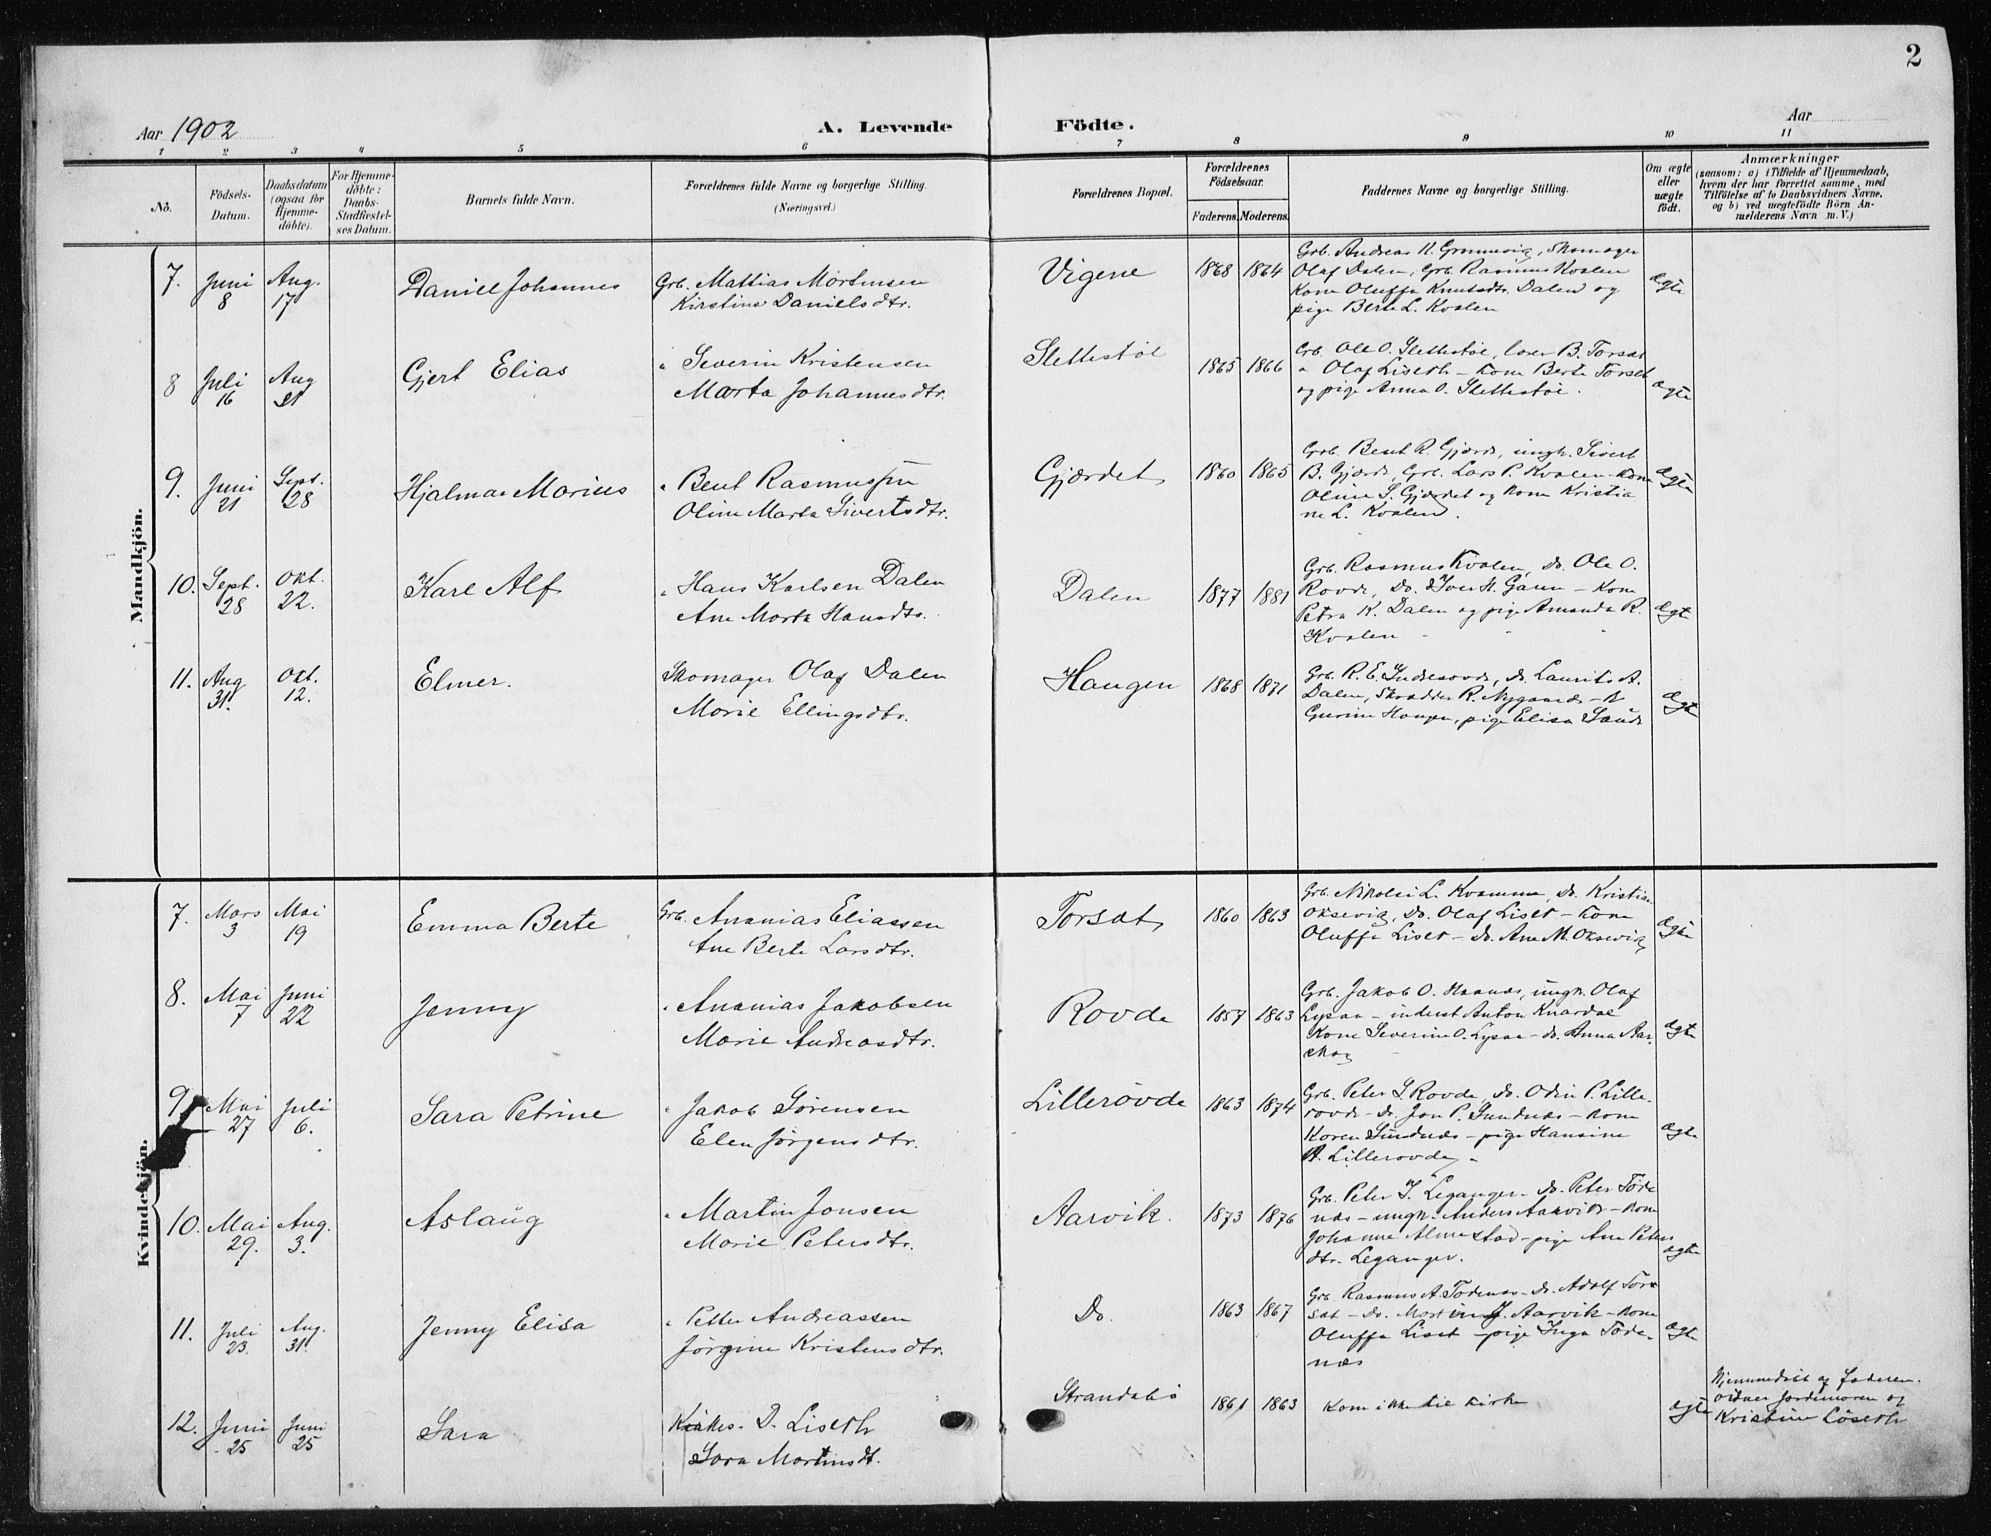 2
Aar 1902
A. Levende Födte.
Aar
1 2 3 4 5 6 7 8 9 10 11
No.
Födsels-Datum.
Daabsdatum (ogsaa for Hjemme-döbte).
For Hjemme-döbte: Daabs-Stadfæstel-ses Datum.
Barnets fulde Navn.
Forældrenes fulde Navne og borgerlige Stilling.
(Næringsvei.)
Forældrenes Bopæl.
Forældrenes Födselsaar.
Faderens. Moderens.
Faddernes Navne og borgerlige Stilling.
Om ægte eller uægte födt.
Anmærkninger
(saasom: a) i Tilfælde af Hjemmedaab, hvem der har forrettet samme, med Tilföielse af to Daabsvidners Navne, og b) ved uægtefödte Börn An-melderens Navn m. V.)
Mandkjön.
7. Juni 8 Aug. 17 Daniel Johannes Grb. Mattias Mortensen
Kirstine Danielsdtr.
Vigene 1868 1864
Grb. Andreas H. Grønnevig, Skomager
Olaf Dalen, Grb. Rasmus Kvalen
Kone Oluffa Knutsdtr. Dalen og
pige Berte L. Kvalen
ægte
8 Juli 16 Aug 31 Gjert Elias " Severin Kristensen
Marta Johannesdtr.
Slettestøl 1865 1866
Grb. Ole O. Slettestøl, lærer B. Torsæt
" Olaf Liseth - Kone Berte Torset
og pige Anna O. Slettestøl.
ægte
9. Juni 21 Sept. 28 Hjalmar Marius " Bent Rasmussen
Oline Marta Sivertsdtr.
Gjærdet 1860 1865
Grb. Bent R. Gjærde, ungk. Sivert
B. Gjærde, Grb. Lars P. Kvalen - Kone
Oline S. Gjærdet og Kone Kristia
ne L. Kvalen.
ægte
10. Sept. 28 Okt. 22. Karl Alf " Hans Karlsen Dalen
Ane Marta Hansdtr.
Dalen 1877 1881
Grb. Rasmus Kvalen, do. Ole O.
Rovde, Do. Iver H. Garen - Kone
Petra K. Dalen og pige Amanda R.
Kvalen
ægte
11. Aug 31. Okt. 12. Elmer. Skomager Olaf Dalen
Marie Ellingsdtr.
Haugen 1868 1871
Grb. R. E. Indresovde, do. Laurits A.
Dalen, Skrædder R. Nygaard - K
Gurine Haugen, pige Elisa Sande
ægte
Kvindekjön.
7. Mars 3 Mai 19 Emma Berte Grb. Ananias Eliassen
Ane Berte Larsdtr.
Torsæt 1860 1863
Grb. Nikolai L. Kvamme, do. Kristian
Oksevig, Do. Olaf Liset - Kone
Oluffa Liset - do. Ane M. Oksevig
ægte
8. Mai 7 Juni 22 Jenny " Ananias Jakobsen
Marie Andreasdtr.
Rovde 1857 1863
Grb. Jakob O. Haanes, ungk. Olaf
Lysaa - inderst Anton Knardal
Kone Severine O. Lysaa - do. Anna Aar
skog
ægte
9 Mai 27 Juli 6. Sara Petrine " Jakob Sørensen
Elen Jørgensdtr.
Lillerovde 1863 1874
Grb. Peter S. Rovde, do. Odin P. Lille-
rovde - do. Jon P. Sundnæs - Kone
Karen Sundnæs - pige Hansine
A. Lillerovde -
ægte
10. Mai 29. Aug. 3. Aslaug " Martin Jonsen
Marie Petersdtr.
Aarvik. 1873 1876
Grb. Peter J. Leganger - do. Peter Töde
næs - ungk. Anders Aakvik - Kone
Johanne Almestad - pige Ane Peters
dtr. Leganger.
ægte
11. Juli 23. Aug. 31. Jenny Elisa " Petter Andreassen
Jörgine Kristensdtr.
Do. 1863 1867
Grb. Rasmus A. Tødenæs - do. Adolf Tor
sæt - do. Martin J. Aarvik - Kone
Oluffa Liset - pige Inga Töde-
næs
ægte
12. Juni 25 Juni 25 Sara Kirkes. D. Liseth
Sara Martinsdt.
Strandabö 1861 1863
Kom ikke til kirke
ægte
Hjemmedøbt af faderen.
vidner jordemoren og
Kristine Löseth